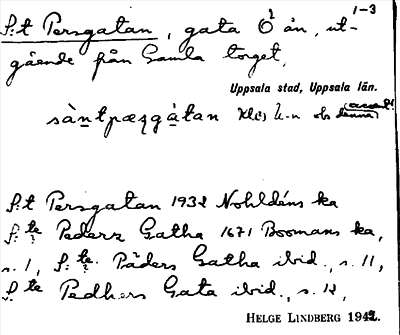 1-3
S:t Persgatan, gata Ö ån, ut-
gående från Gamla torget,
Uppsala stad, Uppsala län.
sàntpæʐgàtan obs denna accent!
S:t Persgatan 1932 Nohldéns ka
S:te Pederz Gatha 1671 Boomans ka,
s. 1, S:te Päders Gatha ibid., s. 11,
S:te Pedhers Gata ibid., s. 12,
HELGE LINDBERG 1942.